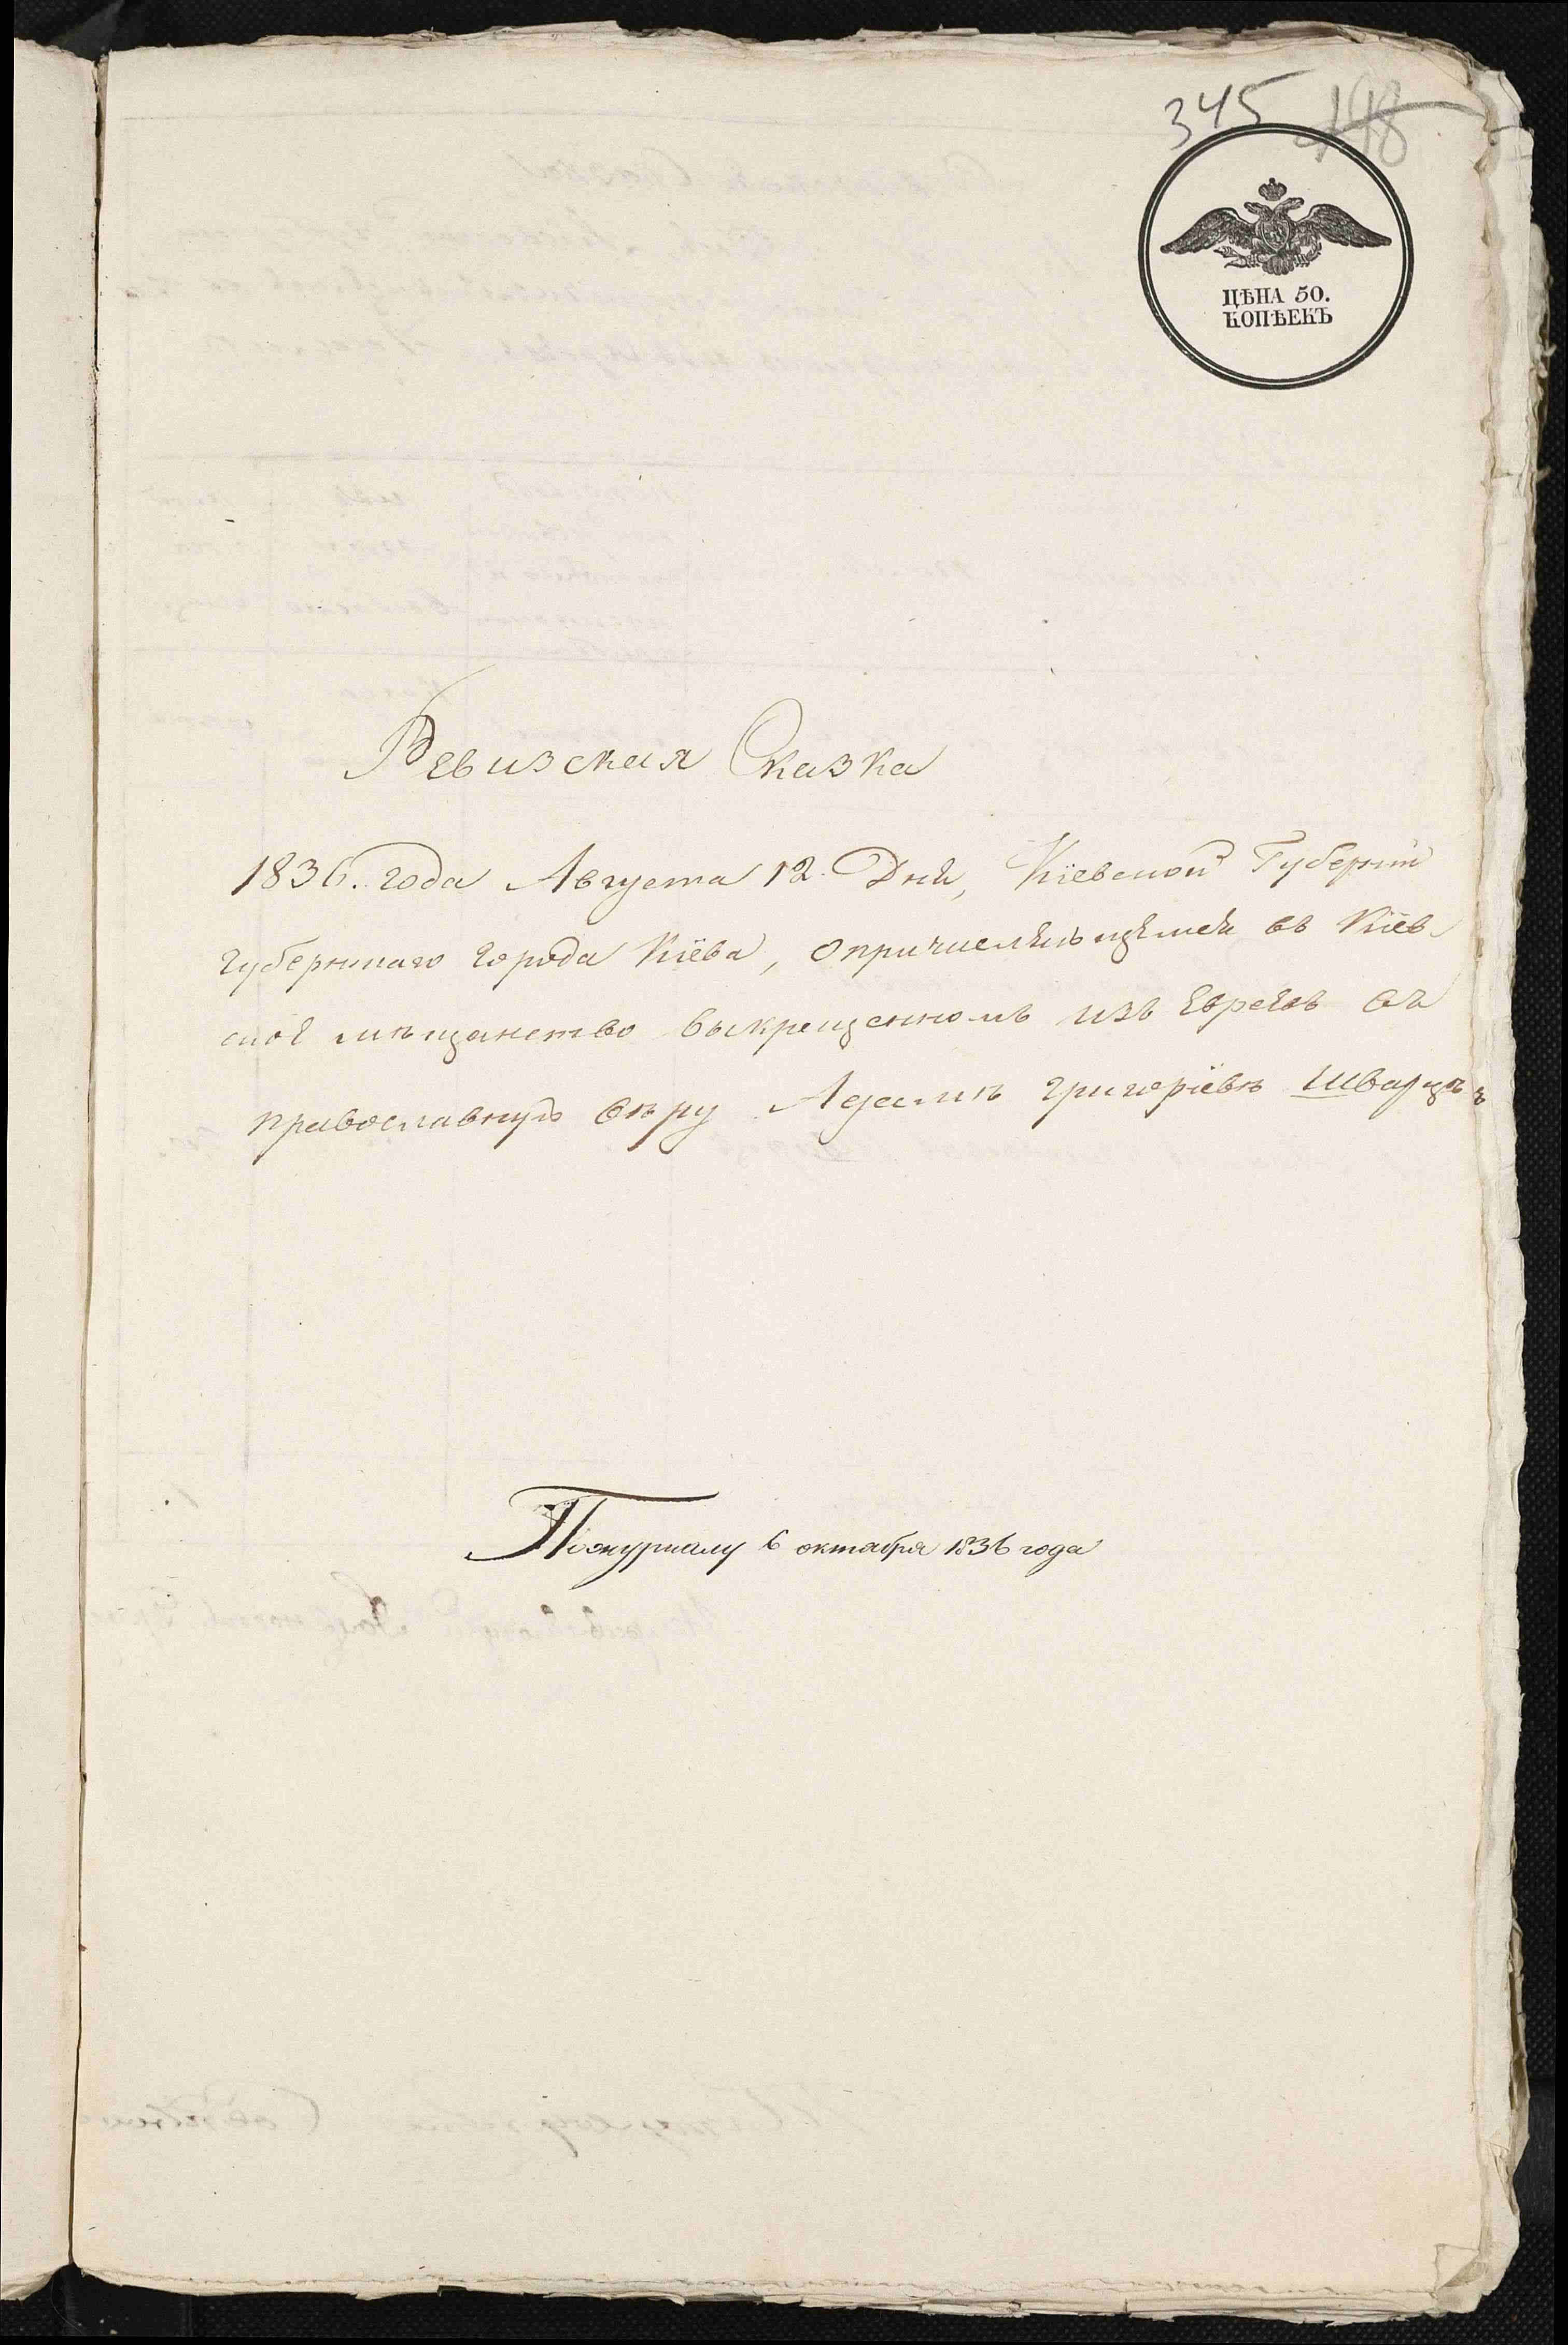 345 198
ЦѢНА 50.
КОПѢЕКЪ
Ревизская Сказка
1836. года Августа 12. Дня, Кіевской Губерніи
Губернскаго города Кіева, о причисляющемся въ Кіев-
ское мѣщанство выкрещенномъ изъ Евреевъ въ
православную вѣру Адамѣ Григорьевѣ Шварцѣ
По журналу 6 октября 1836 года